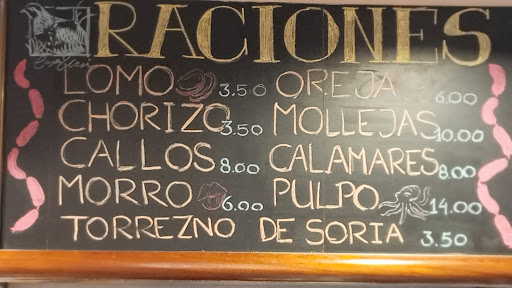 RACIONES
LOMO 3.50 OREJA 6.00
CHORIZO 3.50 MOLLEJAS 10.00
CALLOS 8.00 CALAMARES 8.00
MORRO 6.00 PULPO 14.00
TORREZNO DE SORIA 3.50